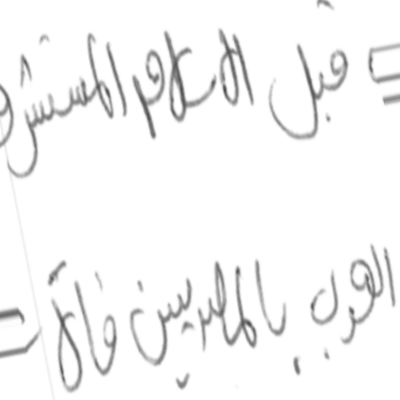 قبل الاعلام المستشرق
العرب بالمصريين قالا